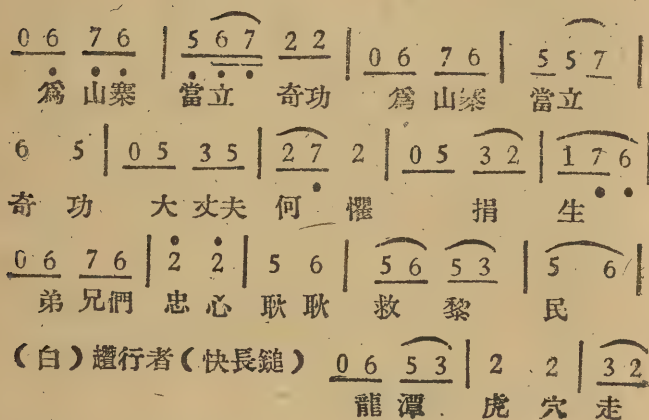 0 6 7 6 | 5 6 7 2 2 | 0 6 7 6 | 5 5 7 |
爲 山寨 當立 奇功 爲 山寨 當立
6 5 | 0 5 3 5 | 2 7 2 | 0 5 3 2 | 1 7 6 |
奇 功 大 丈夫 何 懼 捐 生
0 6 7 6 | 2 2 | 5 6 | 5 6 5 3 | 5 6 |
弟 兄們 忠 心 耿 耿 救 黎 民
(白)趲行者(快長鎚) 0 6 5 3 | 2 2 | 3 2
龍 潭 虎 穴 走